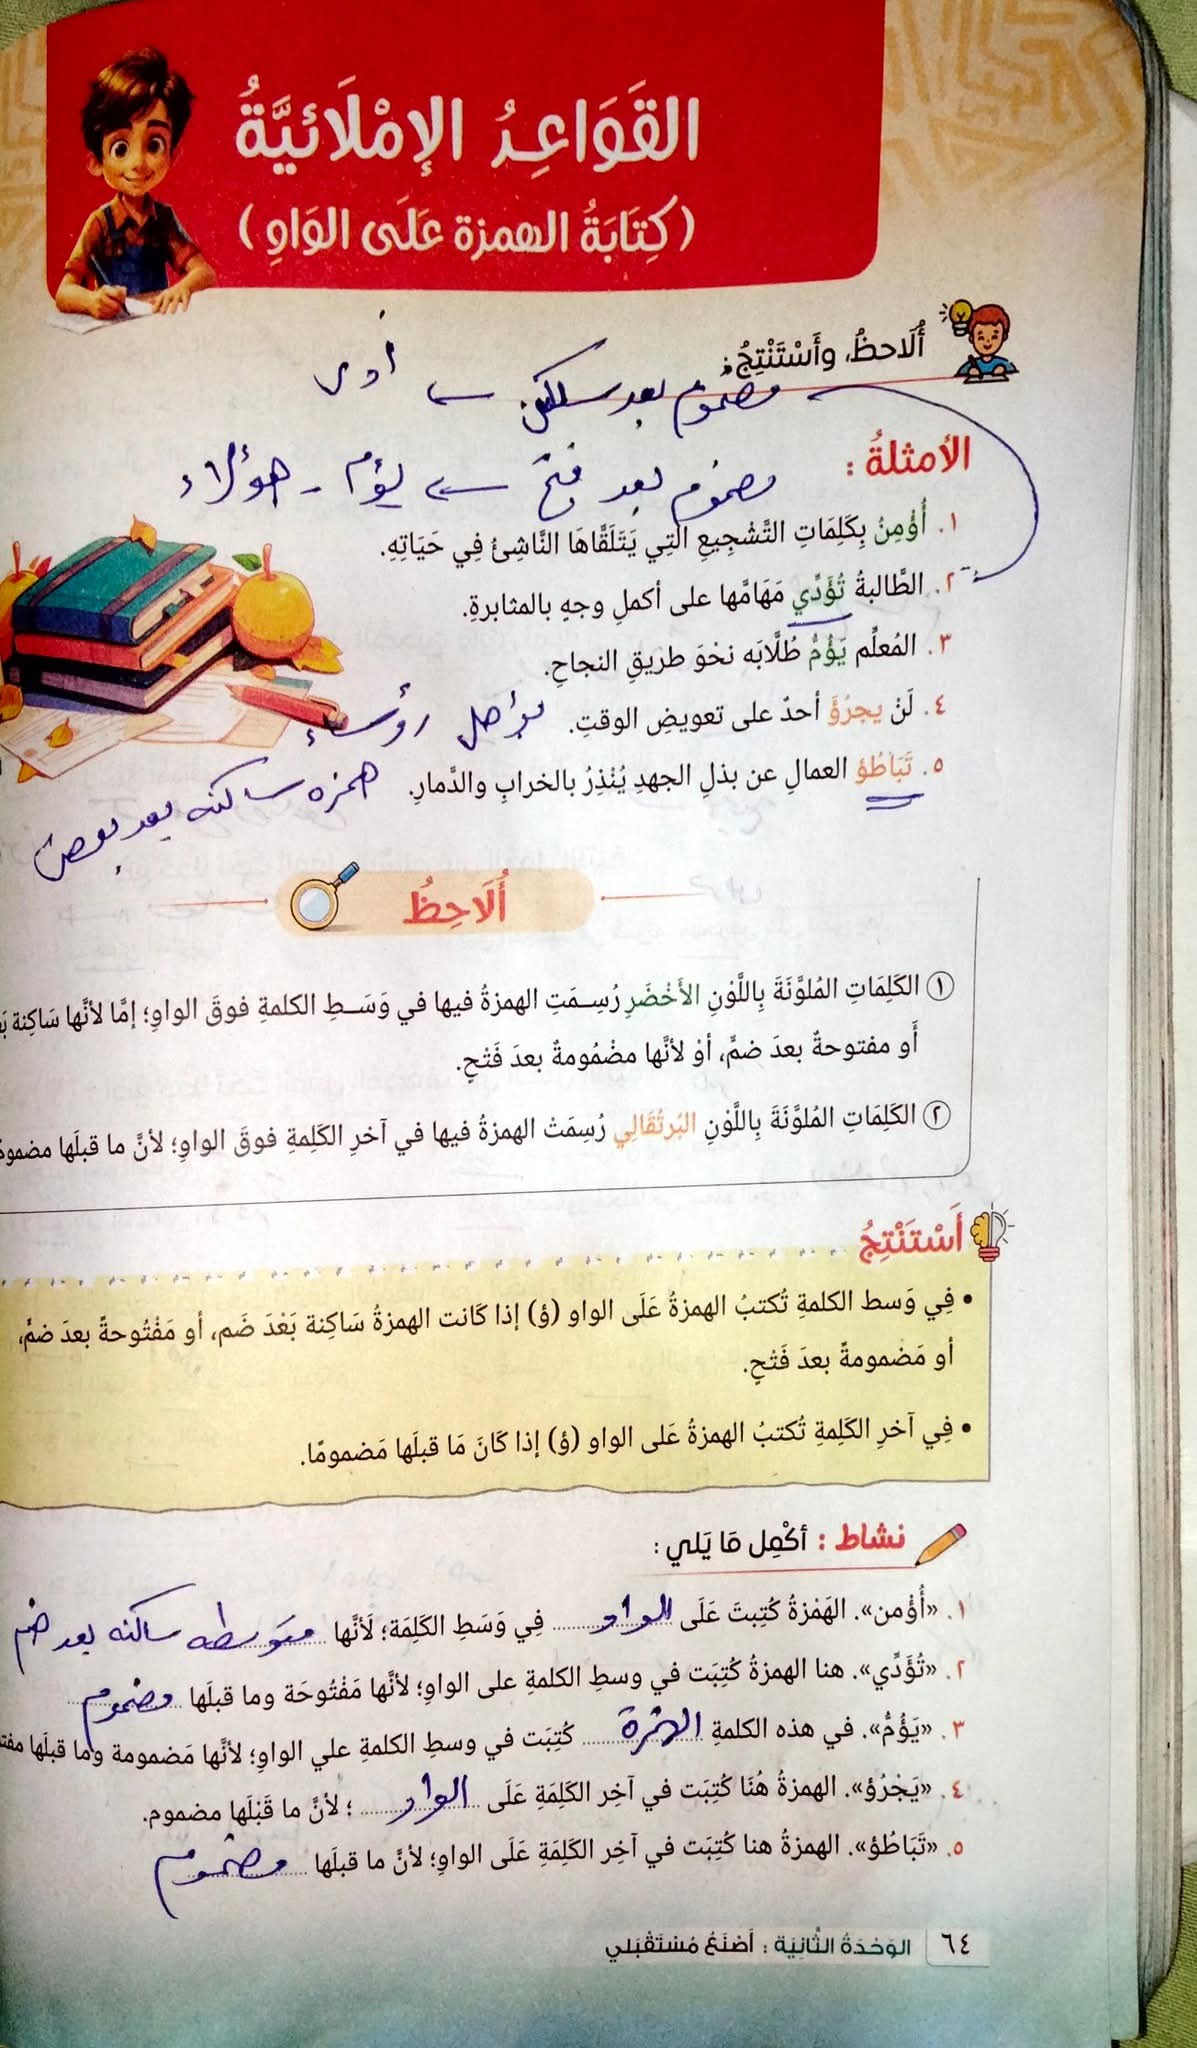 القَوَاعِدُ الإمْلَائيَّةُ
(كِتَابَةُ الهمزة عَلَى الوَاوِ)
أُلَاحظُ، وأَسْتَنْتِجُ:
مضموم بعد ←
الأمثلةُ :
مضموم بعد فتح ← يؤم - هؤلاء
١. أُؤْمِنُ بِكَلِمَاتِ التَّشْجِيعِ التِي يَتَلَقَّاهَا النَّاشِئُ فِي حَيَاتِهِ.
٢. الطَّالبةُ تُؤَدِّي مَهَامَّها على أكملِ وجهٍ بالمثابرةِ.
٣. المُعلِّم يَؤُمُّ طُلَّابَه نحْوَ طريقِ النجاحِ.
٤. لَنْ يجرُؤَ أحدٌ على تعويضِ الوقتِ.
رؤساء
٥. تَبَاطُؤ العمالِ عن بذلِ الجهدِ يُنْذِرُ بالخرابِ والدَّمارِ.
همزه ساكنه بعد
أُلَاحِظُ
① الكَلِمَاتِ المُلوَّنَةَ بِاللَّوْنِ الأَخْضَرِ رُسِمَتِ الهمزةُ فيها في وَسَطِ الكلمةِ فوقَ الواوِ؛ إمَّا لأنَّها سَاكِنة
أَو مفتوحةٌ بعدَ ضمٍّ، أوْ لأنَّها مضْمُومةٌ بعدَ فَتْحٍ.
② الكَلِمَاتِ المُلوَّنَةَ بِاللَّوْنِ البُرتُقَالِي رُسِمَتْ الهمزةُ فيها في آخرِ الكَلِمةِ فوقَ الواوِ؛ لأنَّ ما قبلَها
أَسْتَنْتِجُ
• فِي وَسط الكلمةِ تُكتبُ الهمزةُ عَلَى الواو (ؤ) إذا كَانت الهمزةُ سَاكِنة بَعْدَ ضَم، أو مَفْتُوحةً بعدَ ضمٍّ،
أو مَضمومةً بعدَ فَتْحٍ.
• فِي آخرِ الكَلِمةِ تُكتبُ الهمزةُ عَلى الواو (ؤ) إذا كَانَ مَا قبلَها مَضمومًا.
نشاط : أكْمِل مَا يَلي:
١. «أُؤْمن». الهَمْزةُ كُتِبتَ عَلَى الواو فِي وَسَطِ الكَلِمَة؛ لَأنَّها متوسطه ساكنه بعد ضم
٢. «تُؤَدِّي». هنا الهمزةُ كُتِبَت في وسطِ الكلمةِ على الواوِ؛ لأنَّها مَفْتُوحَة وما قبلَها مضموم
٣. «يَؤُمُّ». في هذه الكلمةِ الهمزة كُتِبَت في وسطِ الكلمةِ علي الواوِ؛ لأنَّها مَضمومة وما قبلَها
٤. «يَجْرُؤ». الهمزةُ هُنَا كُتِبَت في آخِر الكَلِمَةِ عَلَى الواو ؛ لأنَّ ما قَبْلَها مضموم.
٥. «تَبَاطُؤ». الهمزةُ هنا كُتِبَت في آخِر الكَلِمَةِ عَلَى الواوِ؛ لأنَّ ما قبلَها مضموم
٦٤ الوَحْدَةُ الثَّانِيَة : أصْنَعُ مُسْتَقْبَلي